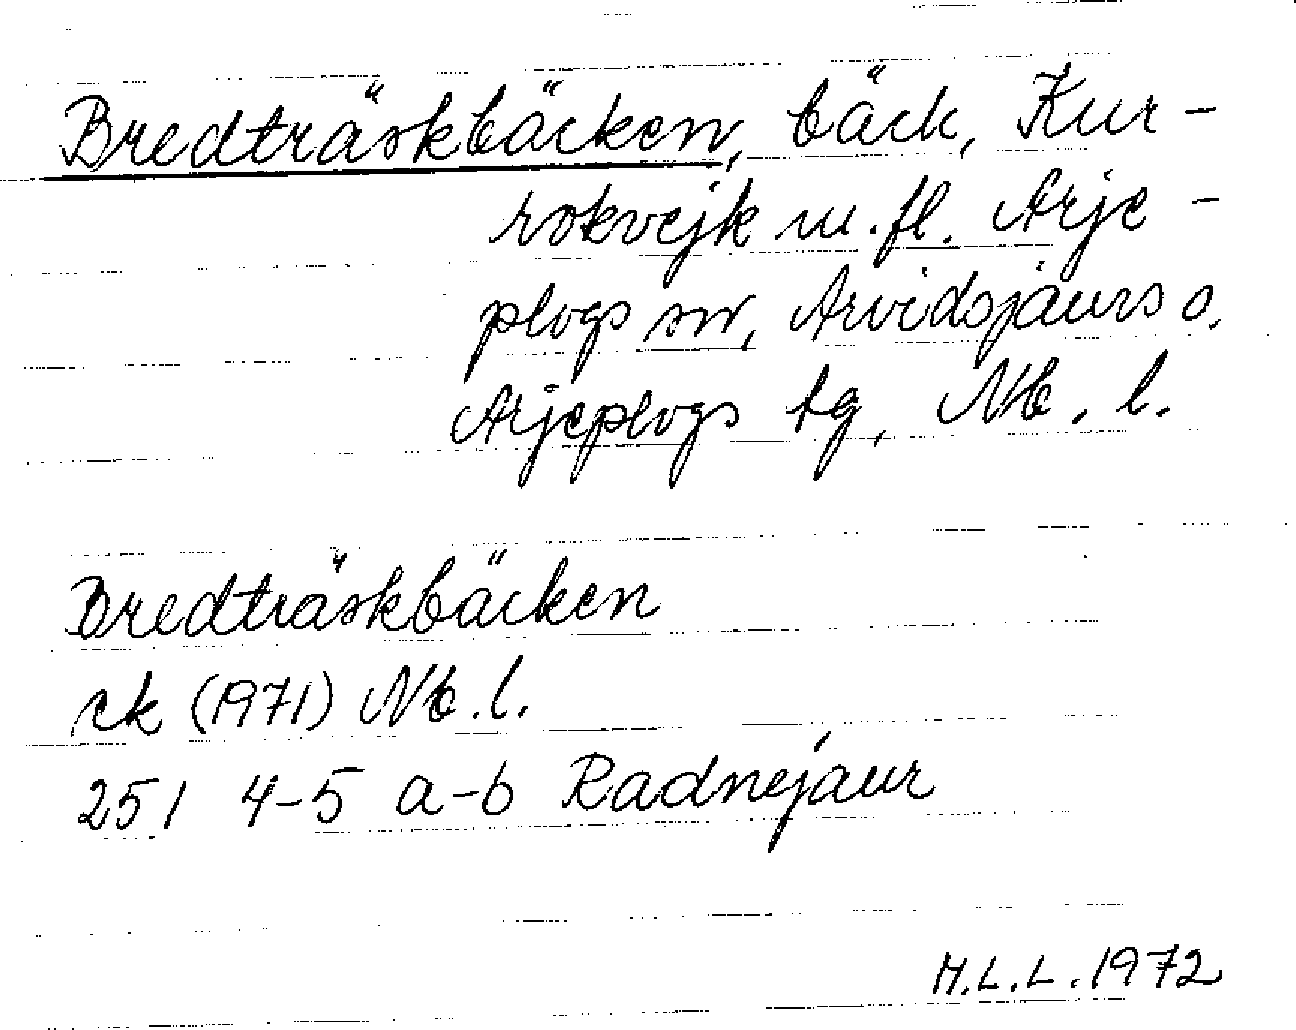 Bredträskbäcken, bäck, Kur-
rokvejk m.fl. Arje-
plogs sn, Arvidsjaurs o.
Arjeplogs tg, Nb. l.
Bredträskbäcken
ek (1971) Nb. l.
25 I 4-5 a-b Radnejaur
M.L.L. 1972